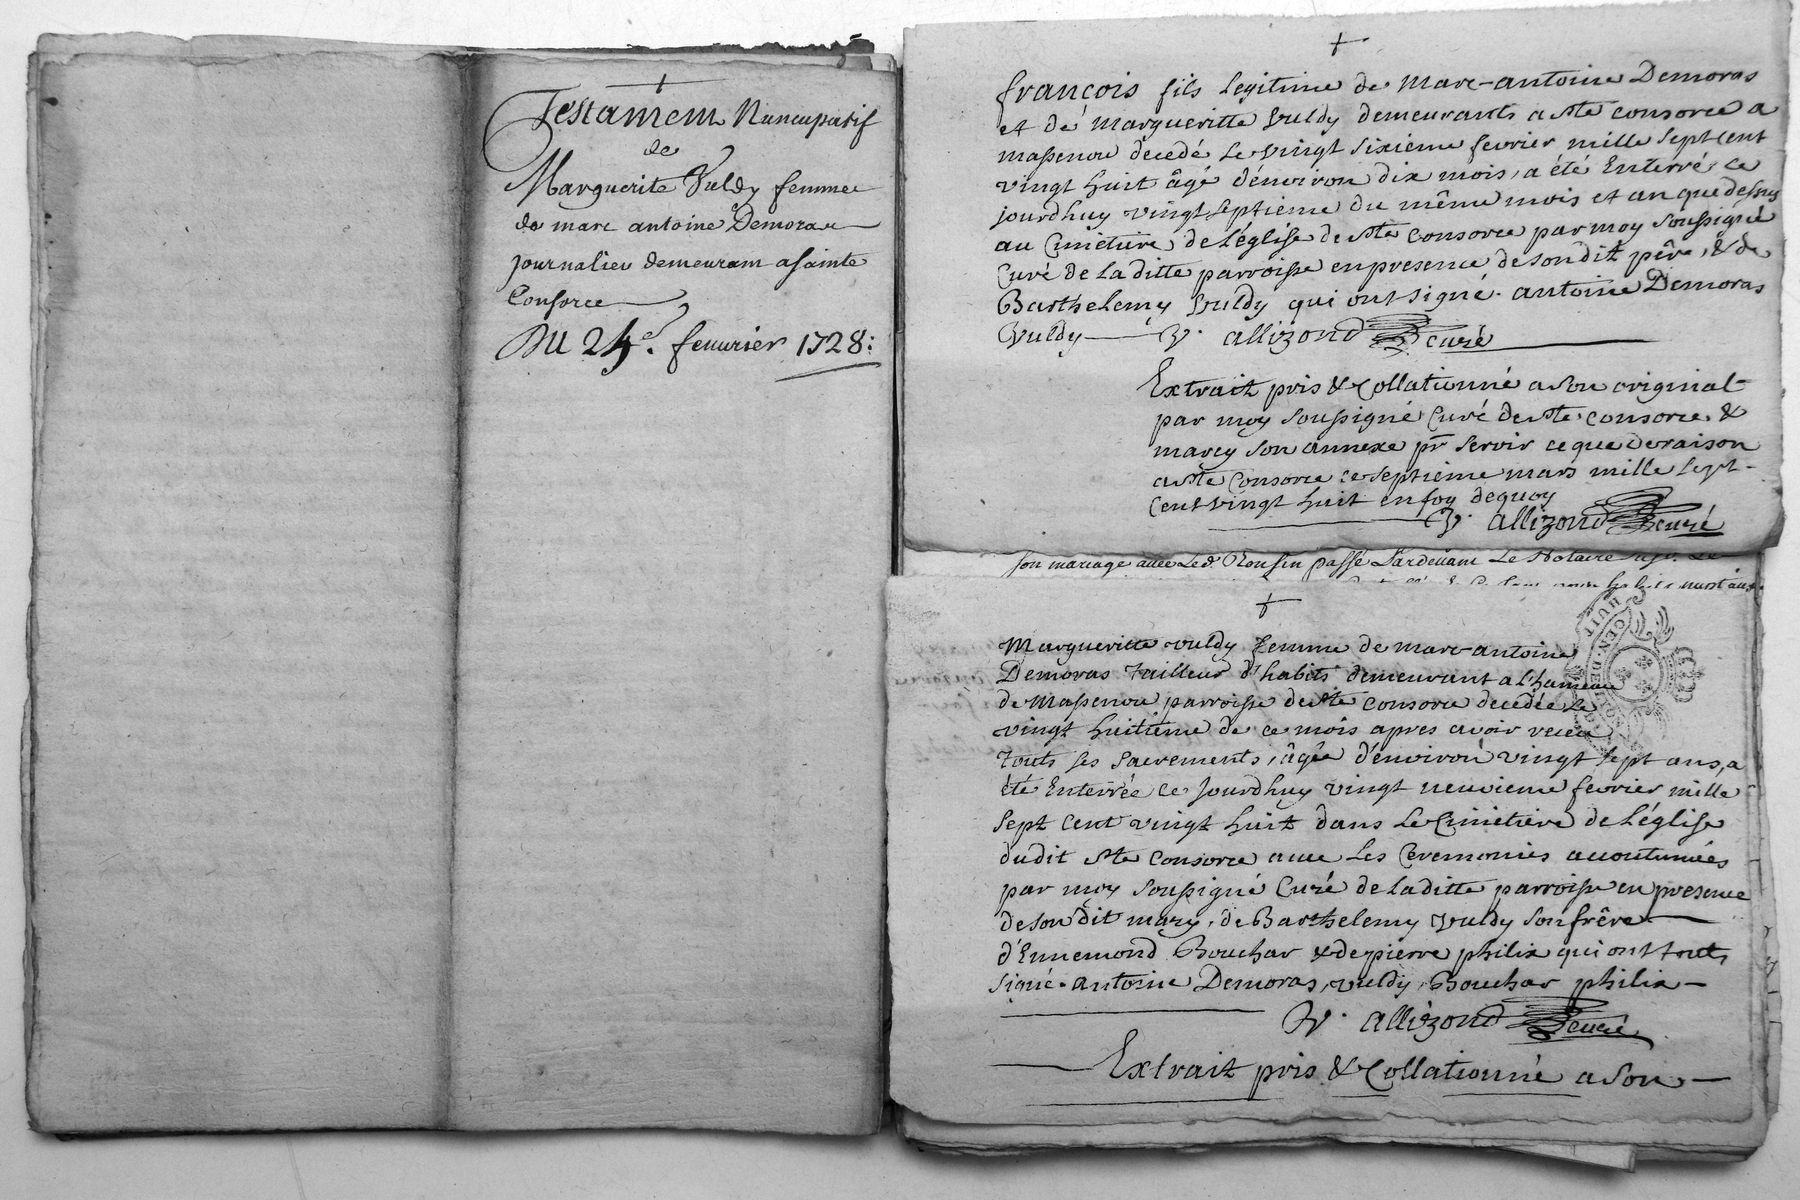 Testament Nuncupatif
de
Marguerite Vuldy femme
de marc antoine Demoras
journalier demeurant a sainte
Consorce
Du 24e. feuurier 1728:
françois fils legitime de Marc-antoine Demoras
et de margueritte Vuldy demeurants a Ste consorce a
massenou decedé le vingt sixieme fevrier mille sept cent
vingt huit âgé d'environ dix mois, a été Enterré ce
jourdhuy vingt septieme du même mois et an que dessus
au Cimetiere de l'église de Ste consorce par moy soussigné
Curé de la ditte parroisse en presence de son dit pêre, & de
Barthelemy Vuldy qui ont signé. antoine Demoras
Vuldy V. allizond curé
Extrait pris & Collationné a son original
par moy soussigné Curé de Ste. consorce &
marcy son annexe pr servir ce que de raison
a Ste Consorce ce septieme mars mille sept
cent vingt huit en foy de quoy
V. allizond curé
son mariage auec Led. Rousin passé Pardeuant Le Notaire
Margueritte vuldy femme de marc-antoine
Demoras tailleur d'habits demeurant a l'hameau
de Massenou parroisse de Ste consorce decedée le
vingt huitieme de ce mois apres avoir receu
touts ses sacrements, âgée d'environ vingt sept ans, a
été Enterrée ce jourdhuy vingt neuvieme fevrier mille
sept cent vingt huit dans le Cimetiere de l'église
dudit Ste consorce avec les Ceremonies accoutumées
par moy soussigné Curé de la ditte parroisse en presence
de son dit mary, de Barthelemy Vuldy son frêre
d'Ennemond Bouchar & de pierre philix qui ont touts
signé. antoine Demoras, vuldy, Bouchar philix
V. allizond curé
Extrait pris & Collationné a son